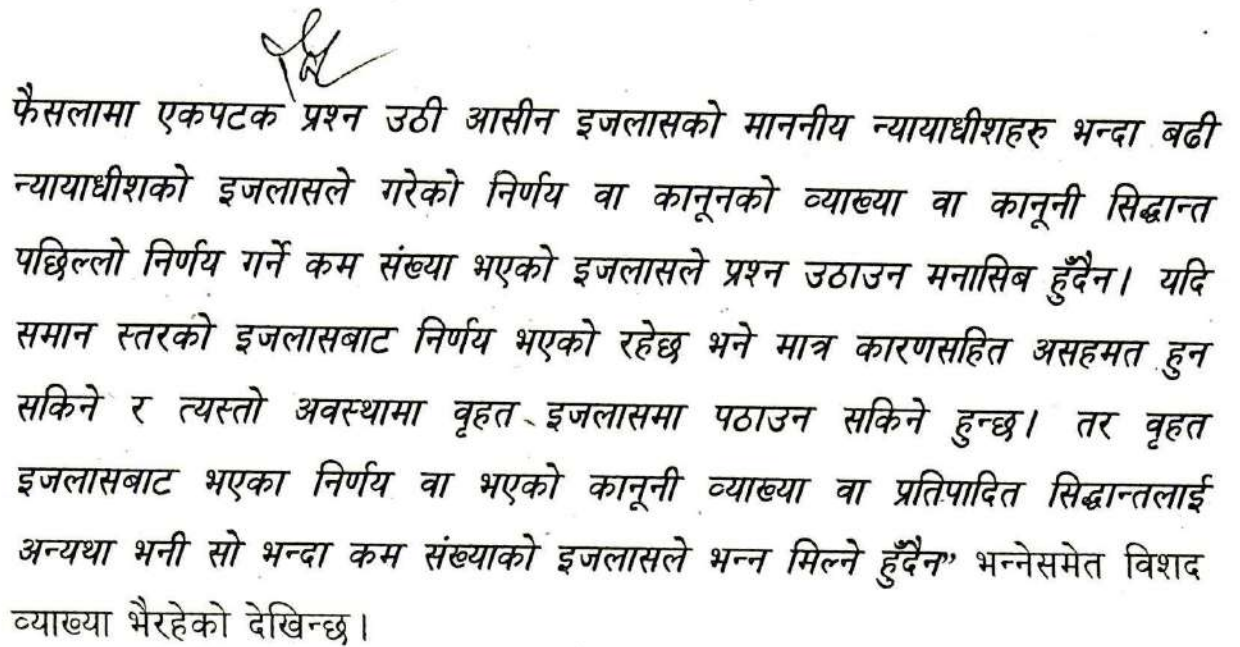 फैसलामा एकपटक प्रश्न उठी आसीन इजलासको माननीय न्यायाधीशहरु भन्दा बढी
न्यायाधीशको इजलासले गरेको निर्णय वा कानूनको व्याख्या वा कानूनी सिद्धान्त
पछिल्लो निर्णय गर्ने कम संख्या भएको इजलासले प्रश्न उठाउन मनासिब हुँदैन। यदि
समान स्तरको इजलासबाट निर्णय भएको रहेछ भने मात्र कारणसहित असहमत हुन
सकिने र त्यस्तो अवस्थामा वृहत इजलासमा पठाउन सकिने हुन्छ। तर वृहत
इजलासबाट भएका निर्णय वा भएको कानूनी व्याख्या वा प्रतिपादित सिद्धान्तलाई
अन्यथा भनी सो भन्दा कम संख्याको इजलासले भन्न मिल्ने हुँदैन” भन्नेसमेत विशद
व्याख्या भैरहेको देखिन्छ।